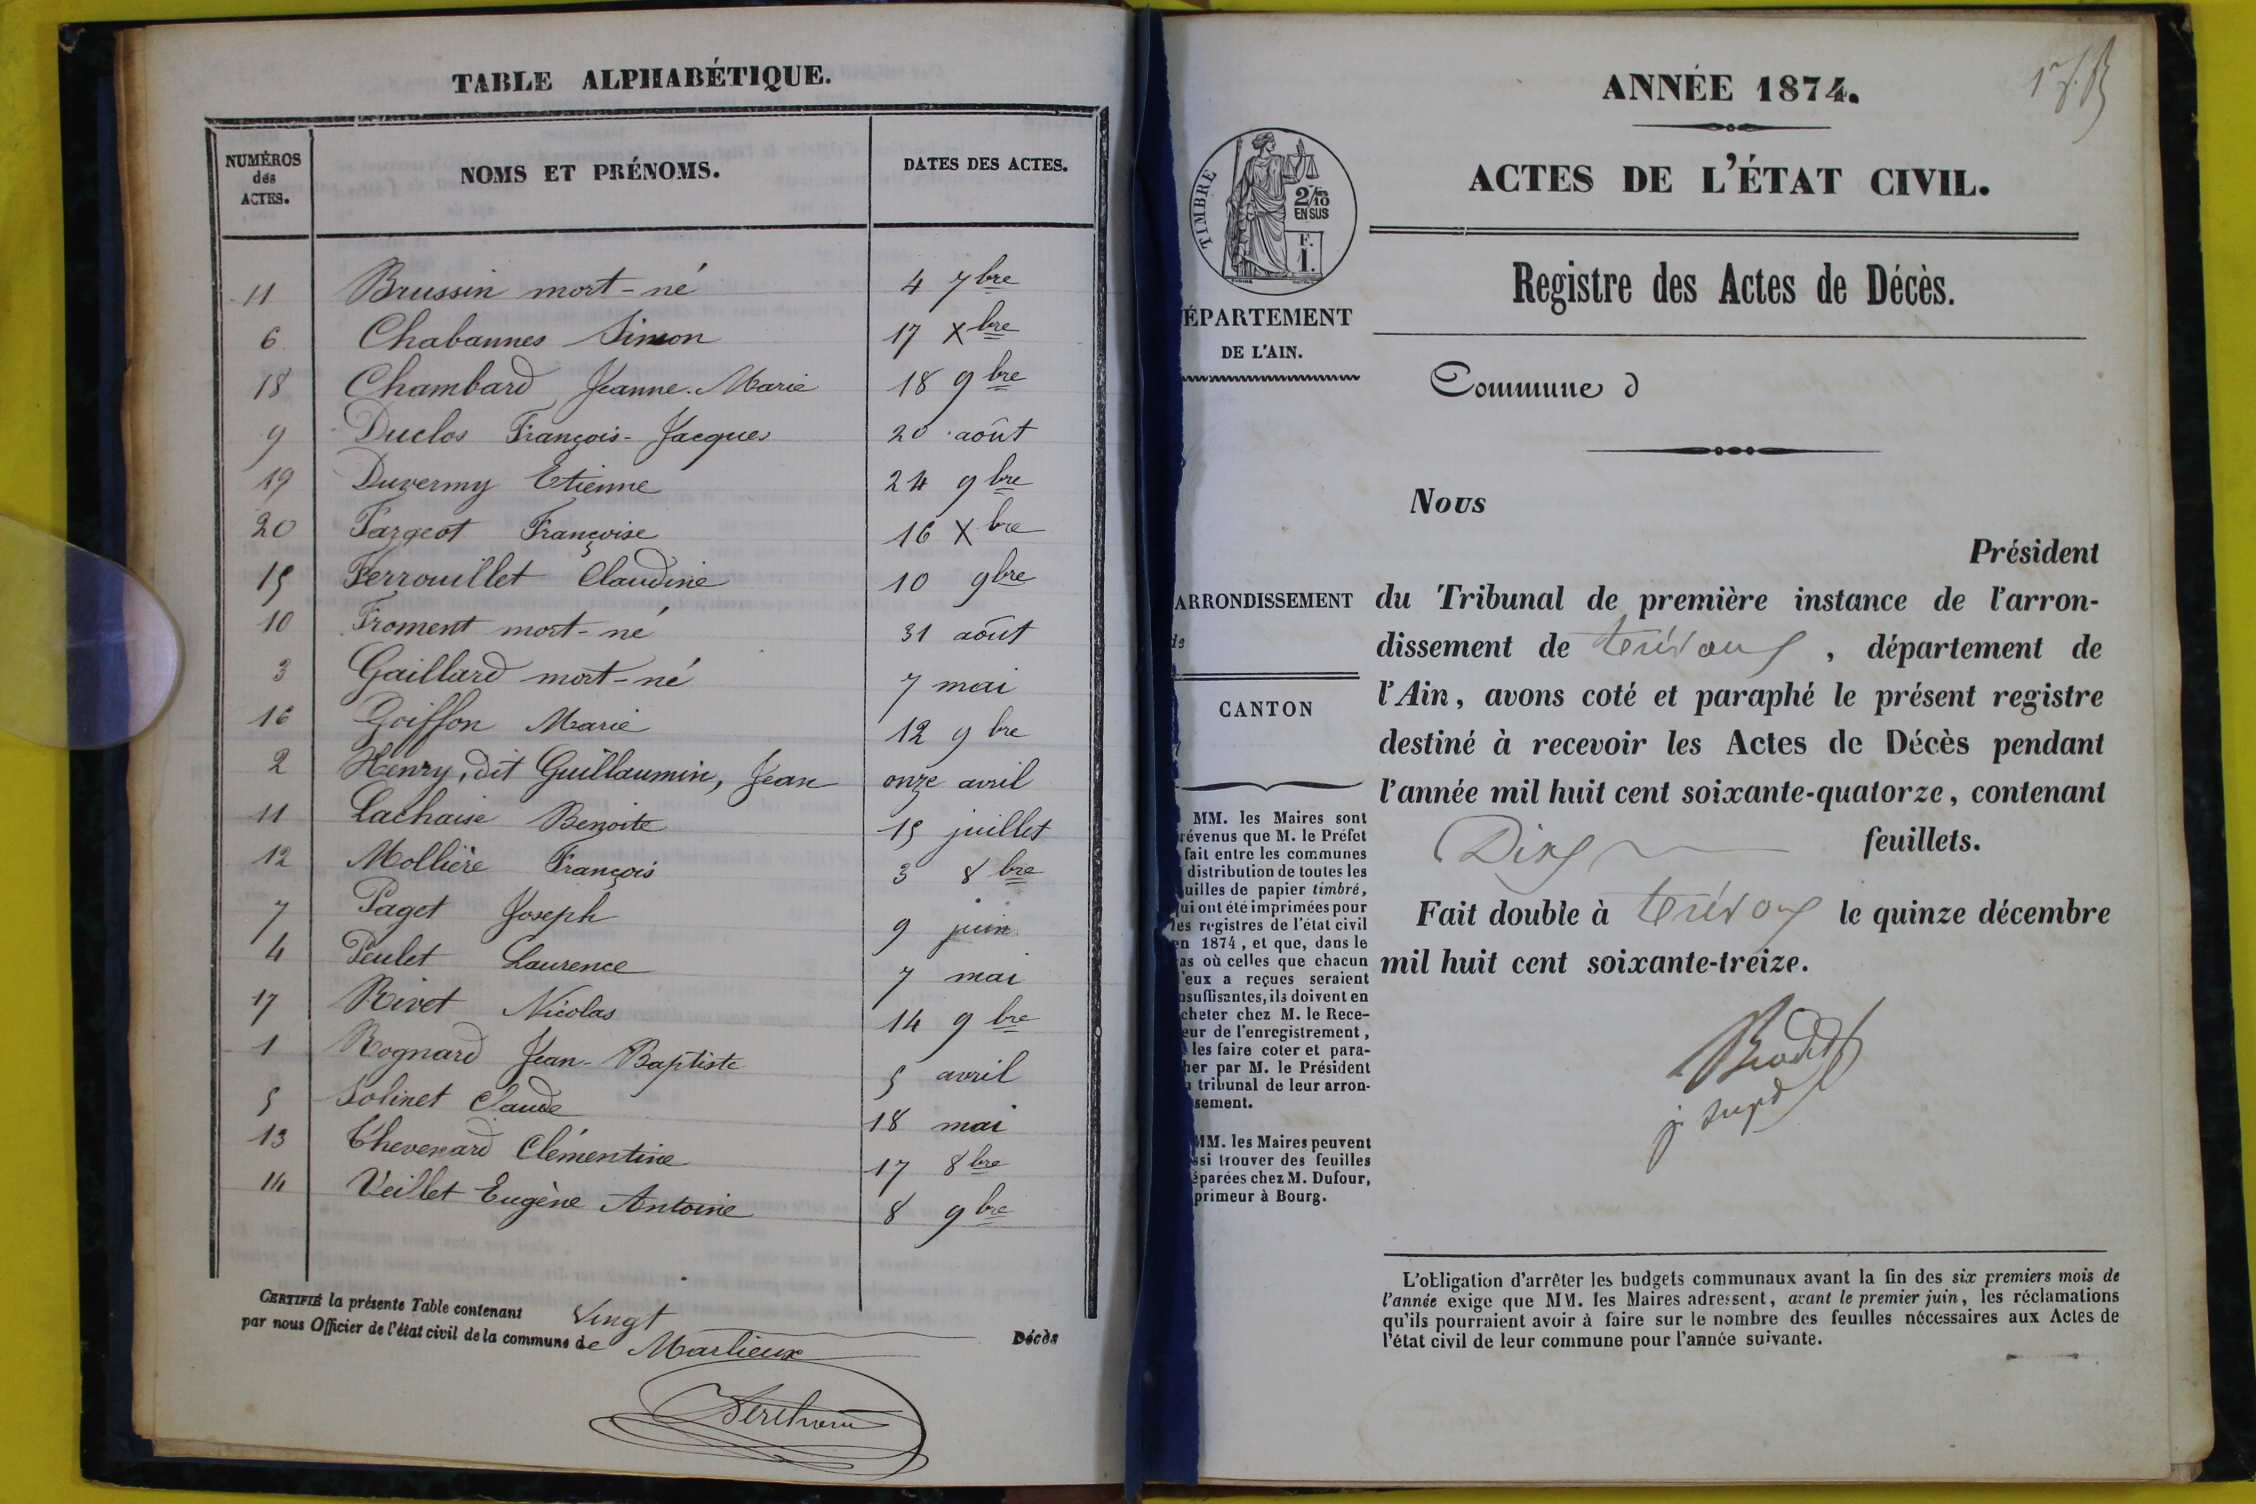 TABLE ALPHABÉTIQUE.
NUMÉROS des ACTES. NOMS ET PRÉNOMS. DATES DES ACTES.
11 Brussin mort-né 4 7bre
6 Chabannes Simon 17 Xbre
18 Chambard Jeanne-Marie 18 9bre
9 Duclos François-Jacques 20 août
19 Duvermy Etienne 24 9bre
20 Fargeot Françoise 16 Xbre
15 Ferrouillet Claudine 10 9bre
10 Froment mort-né 31 août
3 Gaillard mort-né 7 mai
16 Goiffon Marie 12 9bre
2 Henry, dit Guillaumin, Jean onze avril
11 Lachaise Benoite 15 juillet
12 Mollière François 3 8bre
7 Paget Joseph 9 juin
4 Peulet Laurence 7 mai
17 Rivet Nicolas 14 9bre
1 Rognard Jean-Baptiste 5 avril
5 Solinet Claude 18 mai
13 Thevenard Clémentine 17 8bre
14 Veillet Eugène Antoine 8 9bre
CERTIFIÉ la présente Table contenant Vingt Décès
par nous Officier de l'état civil de la commune de Marlieux
ANNÉE 1874.
ACTES DE L'ÉTAT CIVIL.
TIMBRE
2/10
EN SUS
F.
1.
Registre des Actes de Décès.
ÉPARTEMENT
DE L'AIN.
Commune d
Nous
Président
ARRONDISSEMENT
du Tribunal de première instance de l'arron-
dissement de trévoux, département de
l'Ain, avons coté et paraphé le présent registre
destiné à recevoir les Actes de Décès pendant
l'année mil huit cent soixante-quatorze, contenant
Dix feuillets.
Fait double à trévoux le quinze décembre
mil huit cent soixante-treize.
CANTON
MM. les Maires sont
révenus que M. le Préfet
fait entre les communes
distribution de toutes les
uilles de papier timbré,
qui ont été imprimées pour
les registres de l'état civil
en 1874, et que, dans le
cas où celles que chacun
d'eux a reçues seraient
nsuffisantes, ils doivent en
cheter chez M. le Rece-
eur de l'enregistrement,
les faire coter et para-
her par M. le Président
u tribunal de leur arron-
sement.
MM. les Maires peuvent
ssi trouver des feuilles
éparées chez M. Dufour,
primeur à Bourg.
L'obligation d'arrêter les budgets communaux avant la fin des six premiers mois de
l'année exige que MM. les Maires adressent, avant le premier juin, les réclamations
qu'ils pourraient avoir à faire sur le nombre des feuilles nécessaires aux Actes de
l'état civil de leur commune pour l'année suivante.